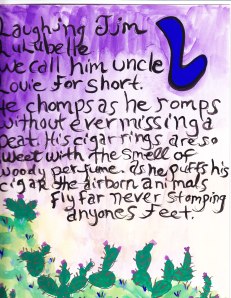 Laughing Jim
Lulabelle
We call him uncle
Louie for short.
He chomps as he romps
without ever missing a
beat. His cigar rings are so
sweet with the smell of
woody perfume. as he puffs his
cigar the airborn animals
fly far never stomping
anyones feet.